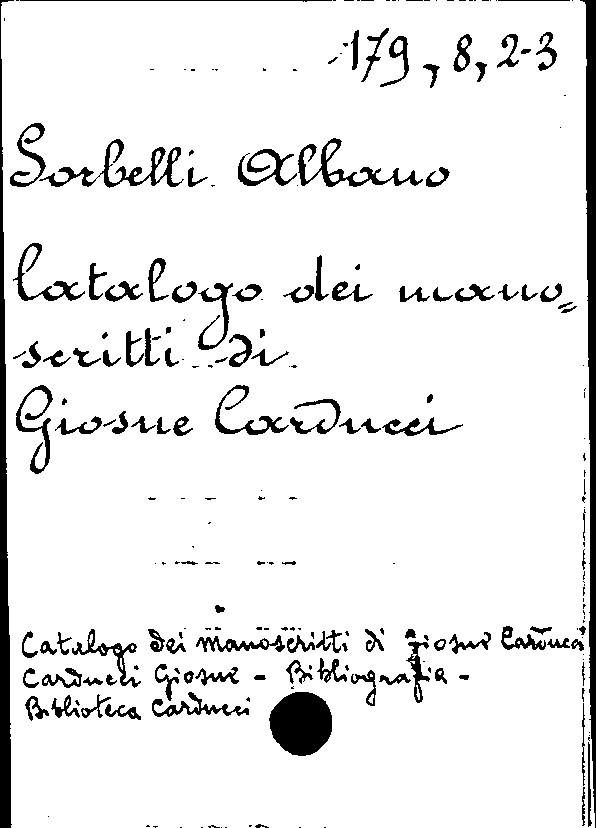 179, 8, 2-3
Sorbelli Albano
Catalogo dei mano=
scritti di
Giosue Carducci
Catalogo dei manoscritti di Giosuè Carducci
Carducci Giosuè - Bibliografia -
Biblioteca Carducci